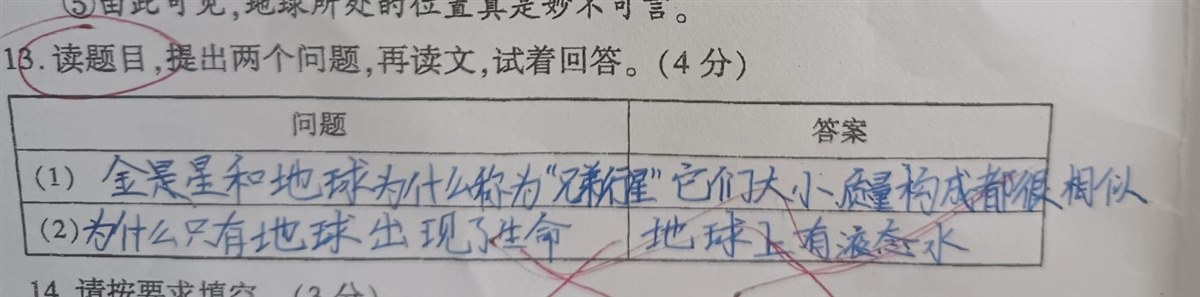 ⑤由此可见,地球所处的位置真是妙不可言。
13.读题目,提出两个问题,再读文,试着回答。(4分)
问题 答案
(1) 金星和地球为什么称为“兄弟行星” 它们大小质量构成都很相似
(2)为什么只有地球出现了生命 地球上有液态水
14.请按要求填空。(3分)